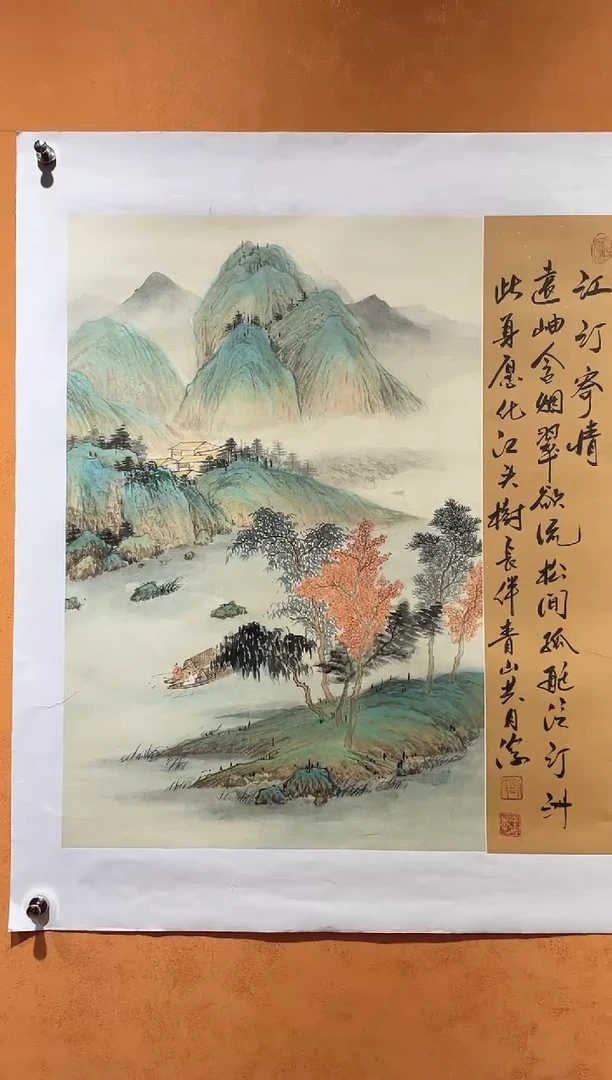 江汀寄情
远岫含烟翠欲流松间孤艇泛汀洲
此身愿化江头樹长伴青山共月流